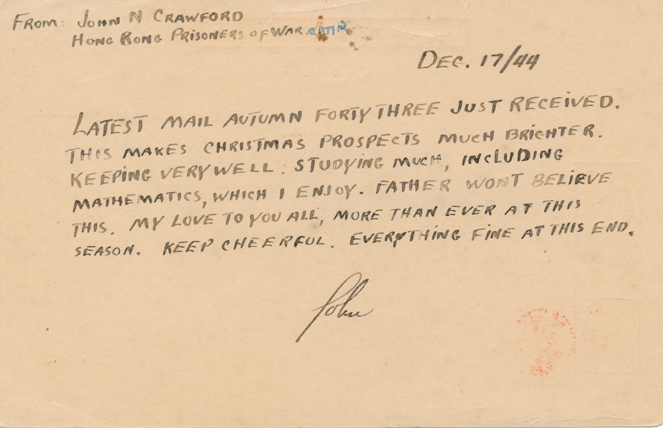 FROM: JOHN N CRAWFORD
HONG KONG PRISONERS OF WAR CAMP
DEC. 17/44
LATEST MAIL AUTUMN FORTY THREE JUST RECEIVED.
THIS MAKES CHRISTMAS PROSPECTS MUCH BRIGHTER.
KEEPING VERY WELL. STUDYING MUCH, INCLUDING
MATHEMATICS, WHICH I ENJOY. FATHER WONT BELIEVE
THIS. MY LOVE TO YOU ALL, MORE THAN EVER AT THIS
SEASON. KEEP CHEERFUL. EVERYTHING FINE AT THIS END.
John